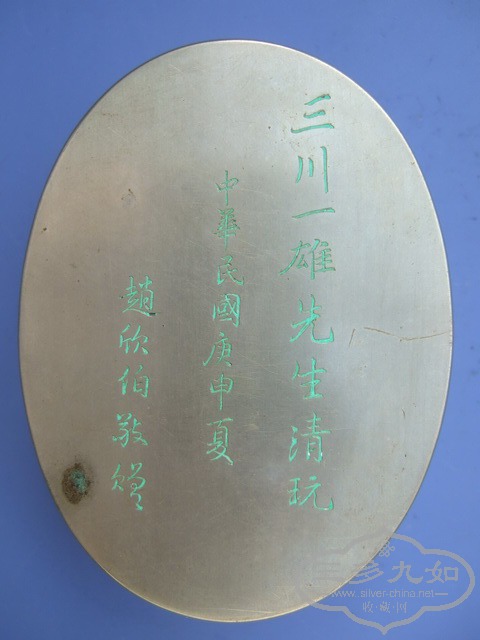 三川一雄先生清玩
中華民國庚申夏
趙欣伯敬贈
多九如
www.silver-china.net
收藏网